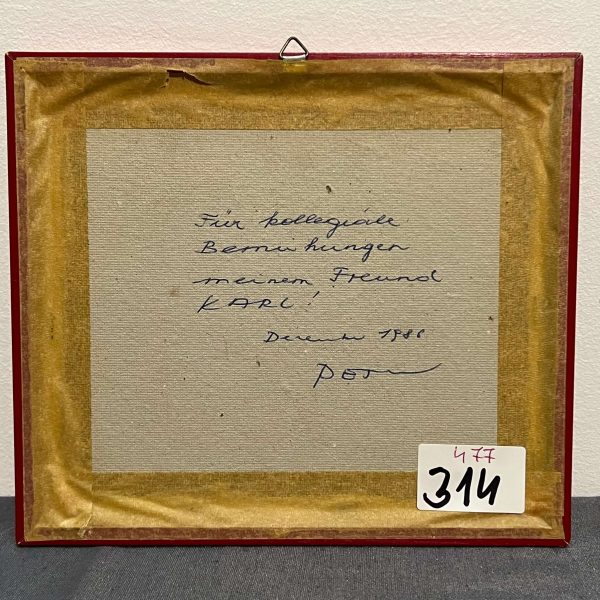 Für kollegiale
Bemuhungen
meinem Freund
KARL!
Dezember 1986
477
314